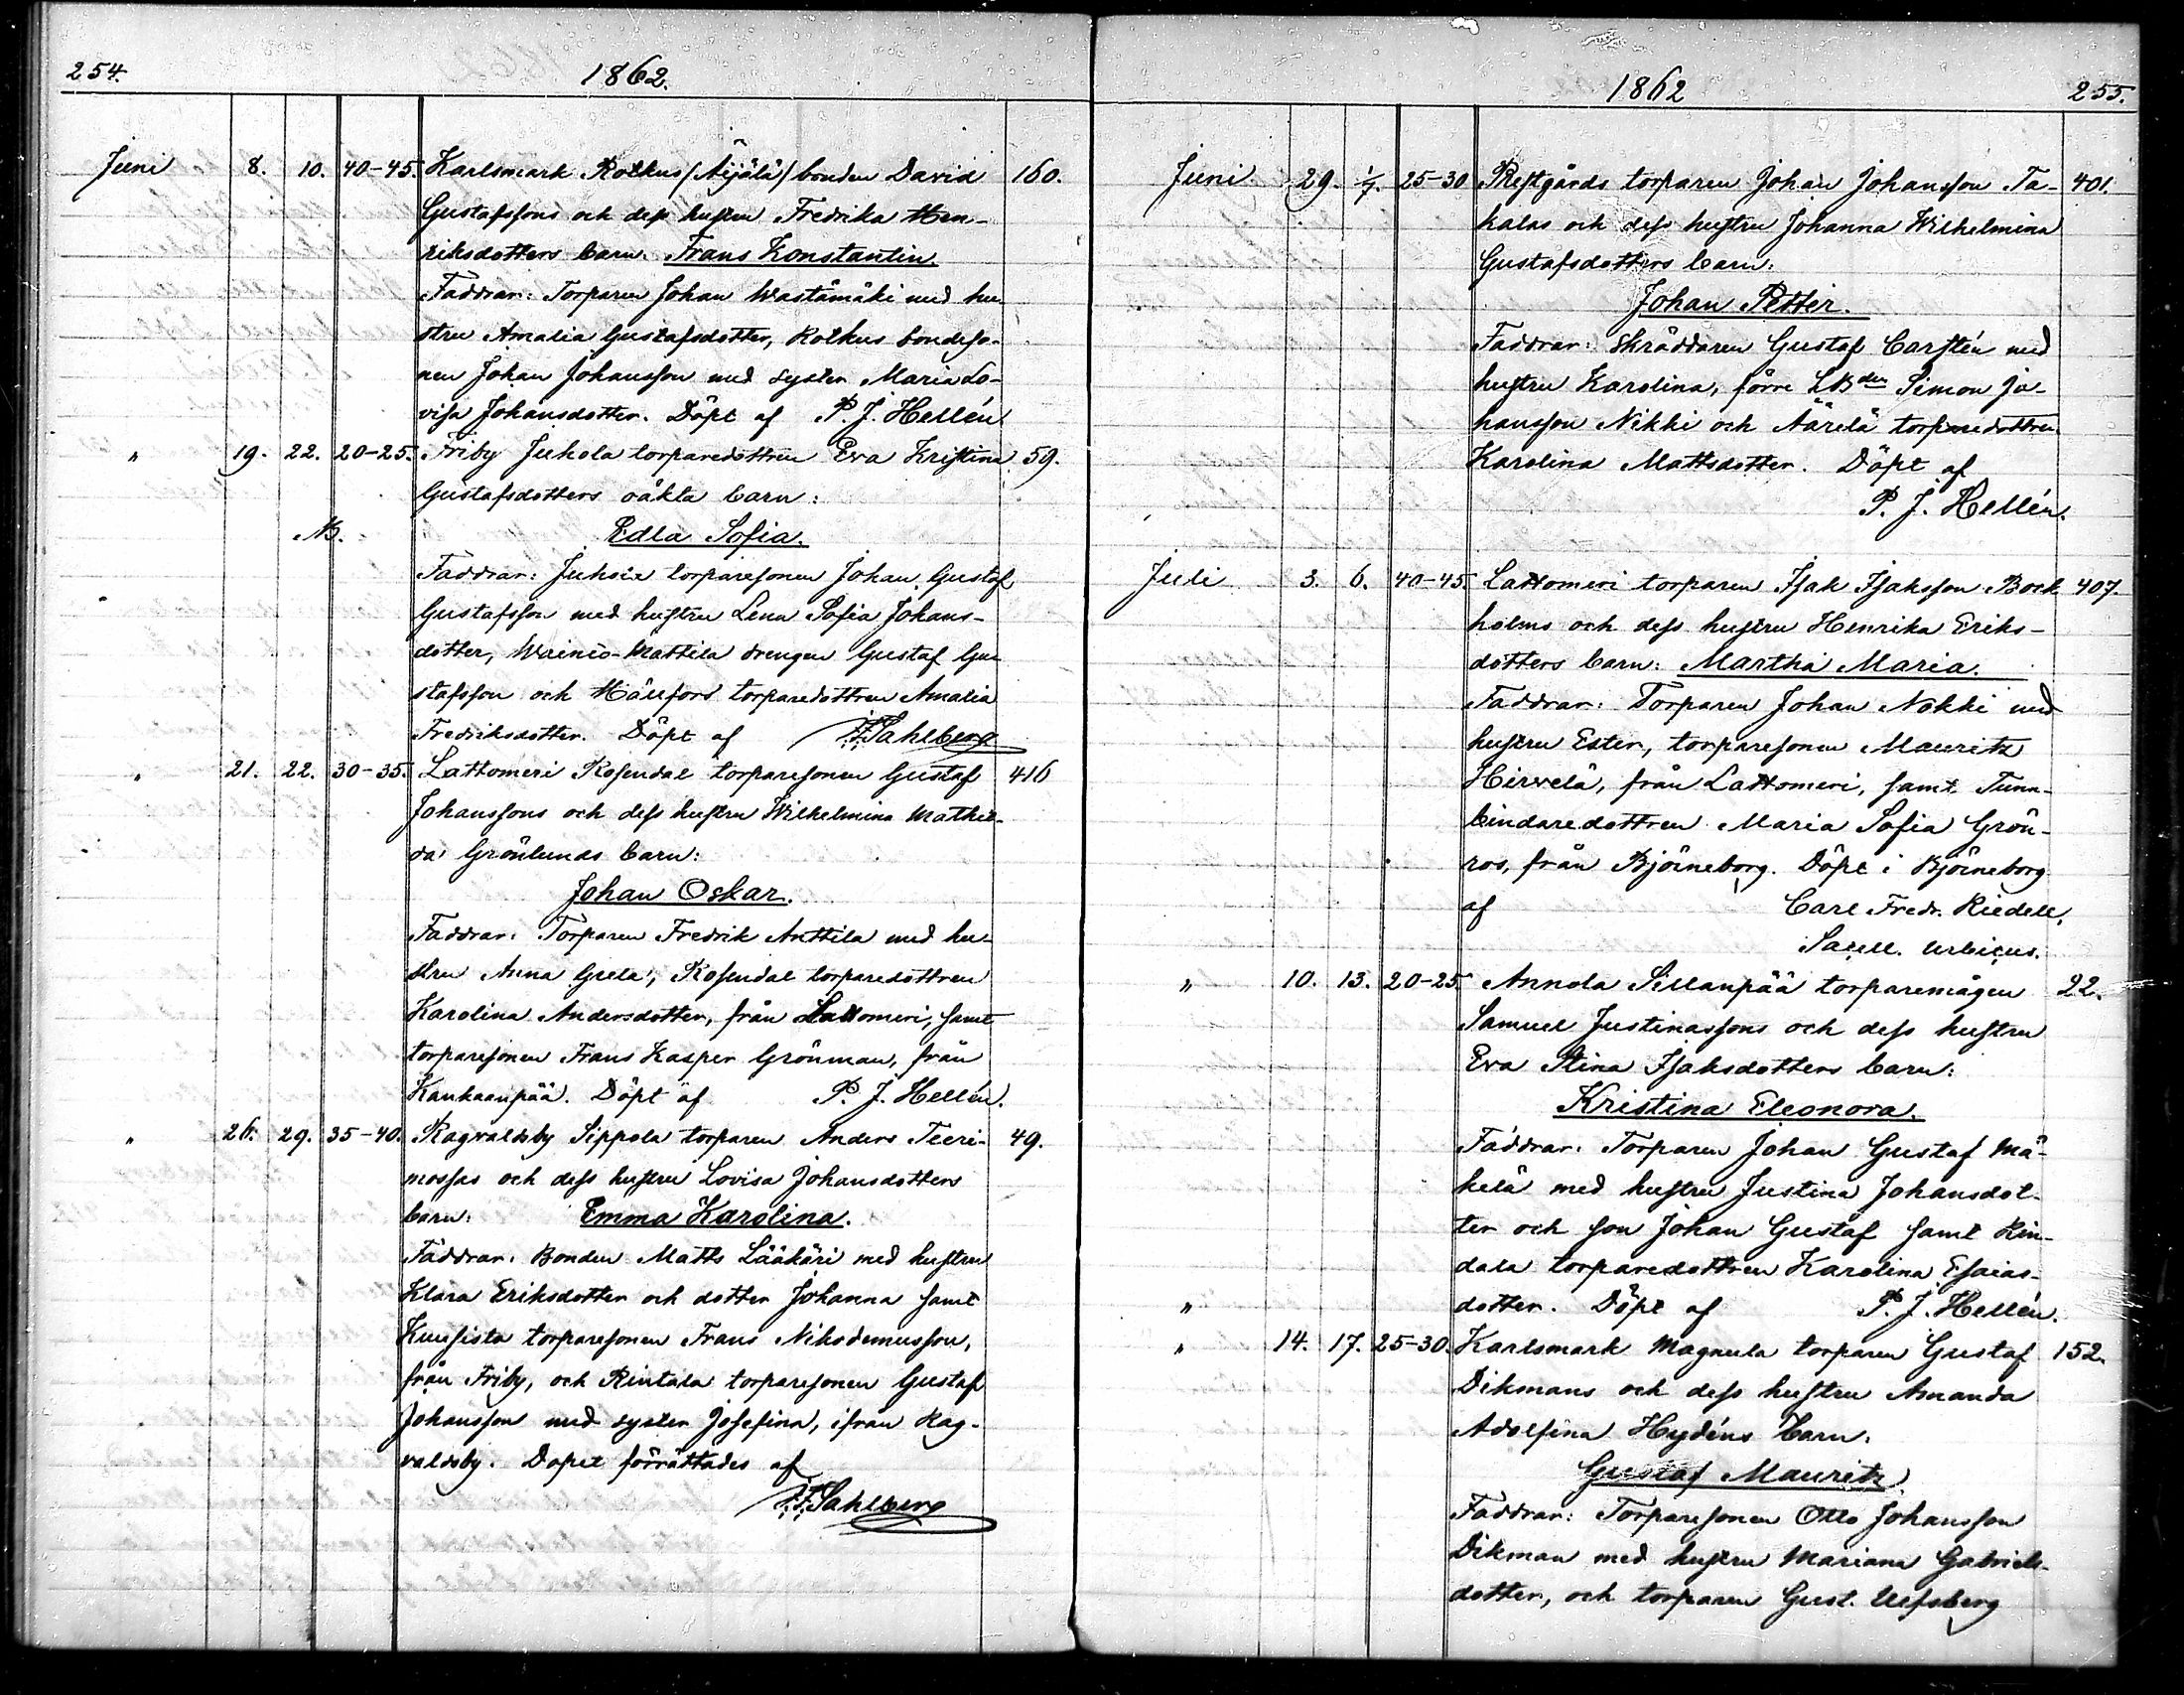 254. 1862.
Juni 8. 10. 40-45. Karlsmark Rotkus/Äijälä/bonden David 160.
Gustafssons och dess hustru Fredrika Hen-
riksdotters barn. Frans Konstantin
Faddrar: Torparen Johan Wastamäki med hu
stru Amalia Gustafsdotter, Rotkus bondeso-
nen Johan Johansson med syster Maria Lo-
visa Johansdotter. Döpt af P. J. Hellén
" 19. 22. 20-25. Friby Juhola torparedottren Eva Kristina 59.
Gustafsdotters oäkta barn:
NB. Edla Sofia.
Faddrar: torparesonen Johan Gustaf
Gustafsson med hustru Lena Sofia Johans-
dotter, Wainio-Mattila drengen Gustaf Gu
stafsson och torparedottren Amalia
Fredriksdotter. Döpt af F. Sahlberg
" 21. 22. 30-35. Lattomeri Rosendal torparesonen Gustaf 416
Johanssons och dess hustru Wilhelmina Mathil-
da Grönlunds barn:
Johan Oskar.
Faddrar: Torparen Fredrik Anttila med hu-
stru Anna Greta, Rosendal torparedottren
Karolina Andersdotter, från Lattomeri, samt
torparesonen Frans Kasper Grönman, från
Kankaanpää. Döpt af P. J. Hellén.
" 26. 29. 35-40. Ragvaldsby Sippola torparen Anders Teeri- 49.
mossas och dess hustru Lovisa Johansdotters
barn: Emma Karolina.
Faddrar: Bonden Matts Lääkäri med hustru
Klara Eriksdotter och dotter Johanna samt
Kuusisto torparesonen Frans Nikodemusson,
från Friby, och Rintala torparesonen Gustaf
Johansson med syster Josefina, ifrån Rag-
valdsby. Dopet förrättades af
F. Sahlberg
1862 255.
Juni 29. 1/7. 25-30 Prestgårds torparen Johan Johansson Ta- 401.
halas och dess hustru Johanna Wilhelmina
Gustafsdotters barn:
Johan Petter.
Faddrar: Skräddaren Gustaf Carstén med
hustru Karolina, förre LBden Simon Jo-
hansson Nikki och Äärelä torparedottren
Karolina Mattsdotter. Döpt af
P. J. Hellén.
Juli 3. 6. 40-45. Lattomeri torparen Isak Isaksson Bock 407.
holms och dess hustru Henrika Eriks-
dotters barn: Martha Maria.
Faddrar: Torparen Johan Nokki med
hustru Ester, torparesonen Mauritz
Hirvelä, från Lattomeri, samt Tunn-
bindaredottren Maria Sofia Grön-
ros, från Björneborg. Döpt i Björneborg
af Carl Fredr. Riedell,
Sacell. urbicus.
" 10. 13. 20-25. Annola Sillanpää torparemågen 22.
Samuel Justinassons och dess hustru
Eva Stina Isaksdotters barn:
Kristina Eleonora.
Faddrar: Torparen Johan Gustaf Mä-
kelä med hustru Justina Johansdot-
ter och son Johan Gustaf samt Rin-
dala torparedottren Karolina Esaias-
" dotter. Döpt af P. J. Hellén.
" 14. 17. 25-30. Karlsmark Magnula torparen Gustaf 152.
Dikmans och dess hustru Amanda
Adolfina Hydéns barn.
Gustaf Mauritz
Faddrar: Torparesonen Otto Johansson
Dikman med hustru Mariana Gabriels-
dotter, och torparen Gust. Ulfsberg